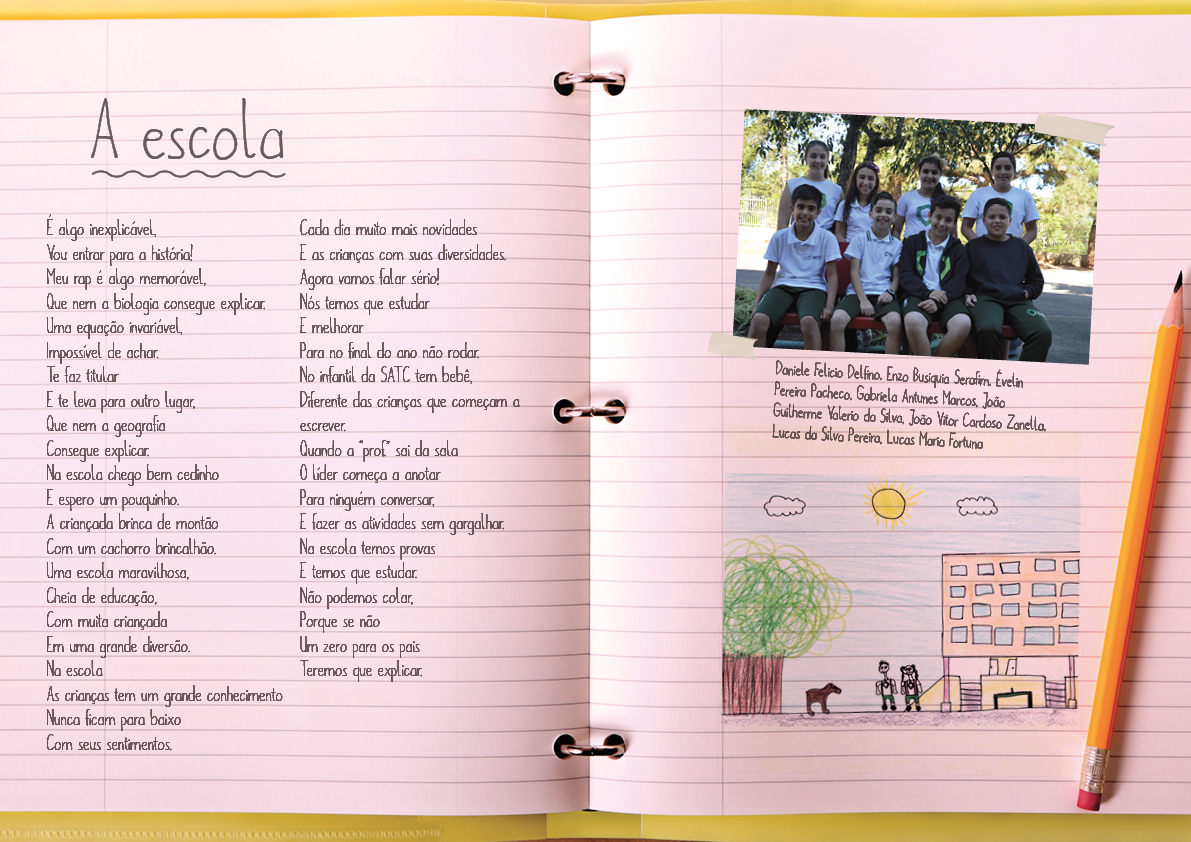 A escola
É algo inexplicável,
Vou entrar para a história!
Meu rap é algo memorável,
Que nem a biologia consegue explicar.
Uma equação invariável,
Impossível de achar.
Te faz titular
E te leva para outro lugar,
Que nem a geografia
Consegue explicar.
Na escola chego bem cedinho
E espero um pouquinho.
A criançada brinca de montão
Com um cachorro brincalhão.
Uma escola maravilhosa,
Cheia de educação,
Com muita criançada
Em uma grande diversão.
Na escola
As crianças tem um grande conhecimento
Nunca ficam para baixo
Com seus sentimentos.
Cada dia muito mais novidades
E as crianças com suas diversidades.
Agora vamos falar sério!
Nós temos que estudar
E melhorar
Para no final do ano não rodar.
No infantil da SATC tem bebê,
Diferente das crianças que começam a
escrever.
Quando a "prof." sai da sala
O líder começa a anotar
Para ninguém conversar,
E fazer as atividades sem gargalhar.
Na escola temos provas
E temos que estudar.
Não podemos colar,
Porque se não
Um zero para os pais
Teremos que explicar.
Daniele Felicio Delfino, Enzo Busiquia Serafim, Évelin
Pereira Pacheco, Gabriela Antunes Marcos, João
Guilherme Valerio da Silva, João Vitor Cardoso Zanella,
Lucas da Silva Pereira, Lucas Maria Fortuna